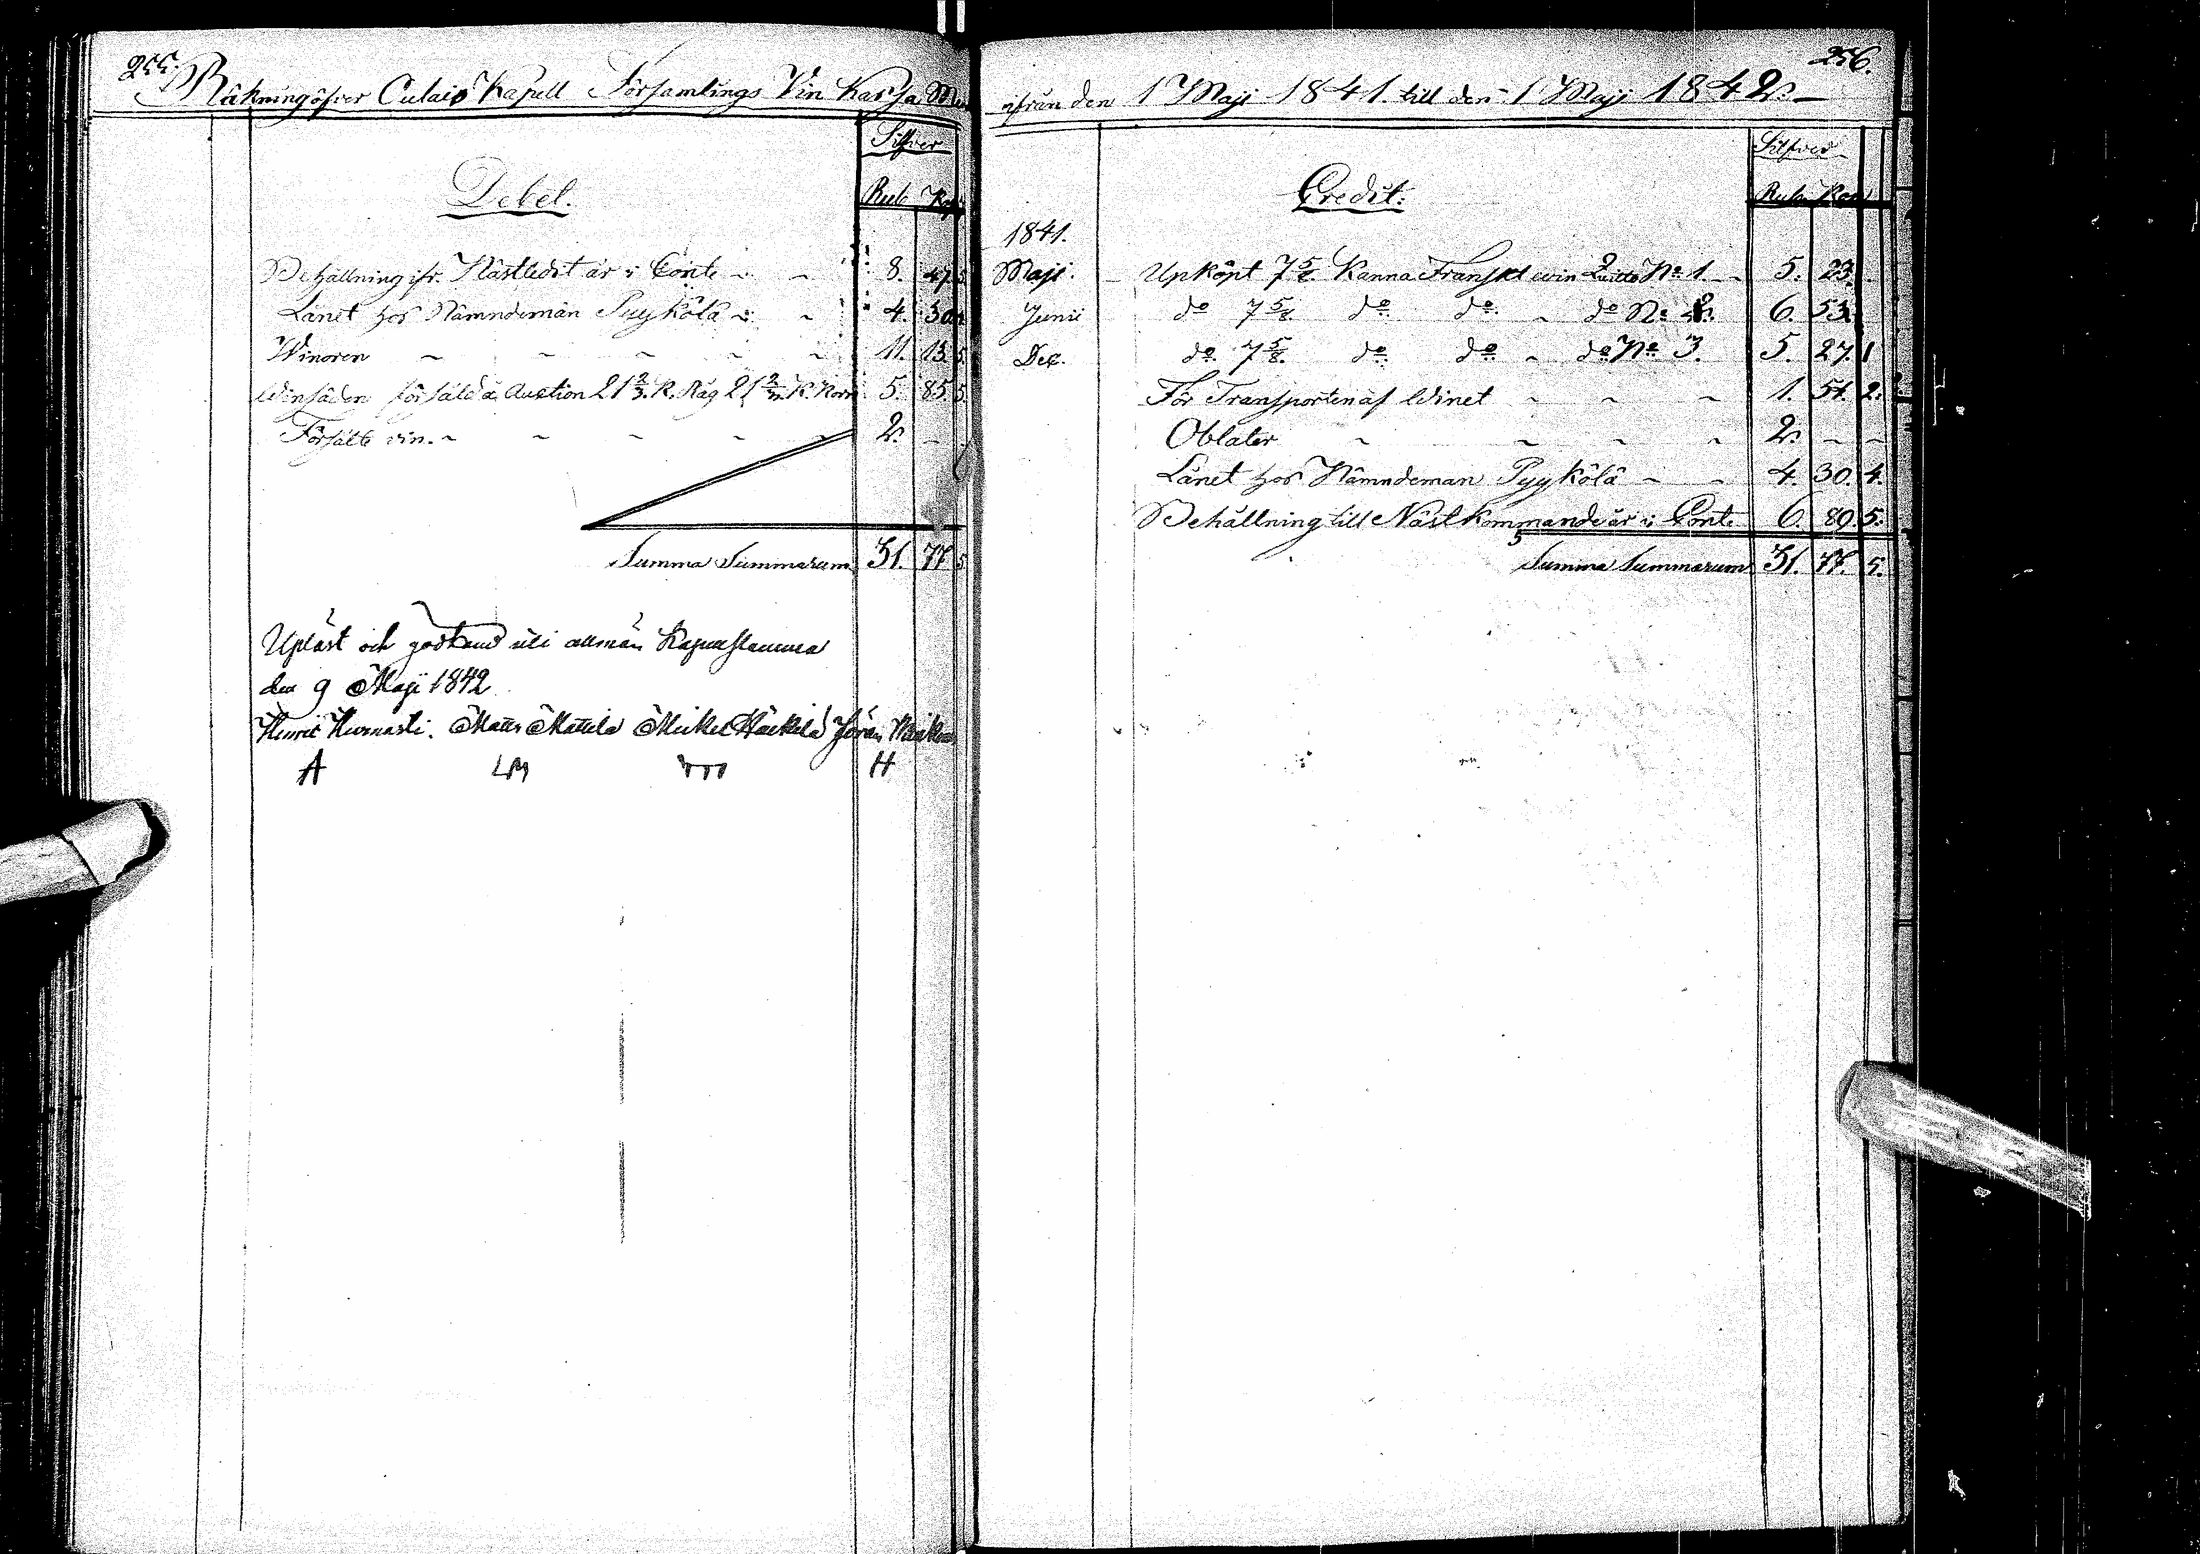 255.
Räkning öfver Culais Kapell Församlings Vin Kassa
Silfver
Debet.
Rub Kop
Behållning ifr. Nästledit år i Conto 8. 47 5
Lånet hos Nämndeman Pyykölä 4. 30
Winören 11. 13 5.
Winsäden försåld å Auction 21 2/3 K. Råg 21 K. Korn 5. 85 5.
Försålt vin. 2. - -
Summa Summarum 31. 77 5
Upläst och godkänd uti allmän
den 9 Maji 1842
Henric Matts Mattila Mickel Jöran
A LM H
256.
ifrån den 1 Maji 1841. till den 1 Maji 1842.
Silfver
Credit.
Rub. Kop
1841.
Maji. Upköpt 7 5/8 Kanna Franskt win Quitto No 1. 5. 23.
Junii do 7 5/8. do do do No 2. 6. 53.
Dec. do. 7 5/8. do do do No 3. 5. 27. 1
För Transporten af Winet 1. 51. 2.
Oblater 2. - -
Lånet hos Nämndeman Pyykölä 4. 30. 4.
Behållning till Nästkommande år i Conto 6. 89. 5.
Summa Summarum 31. 77. 5.